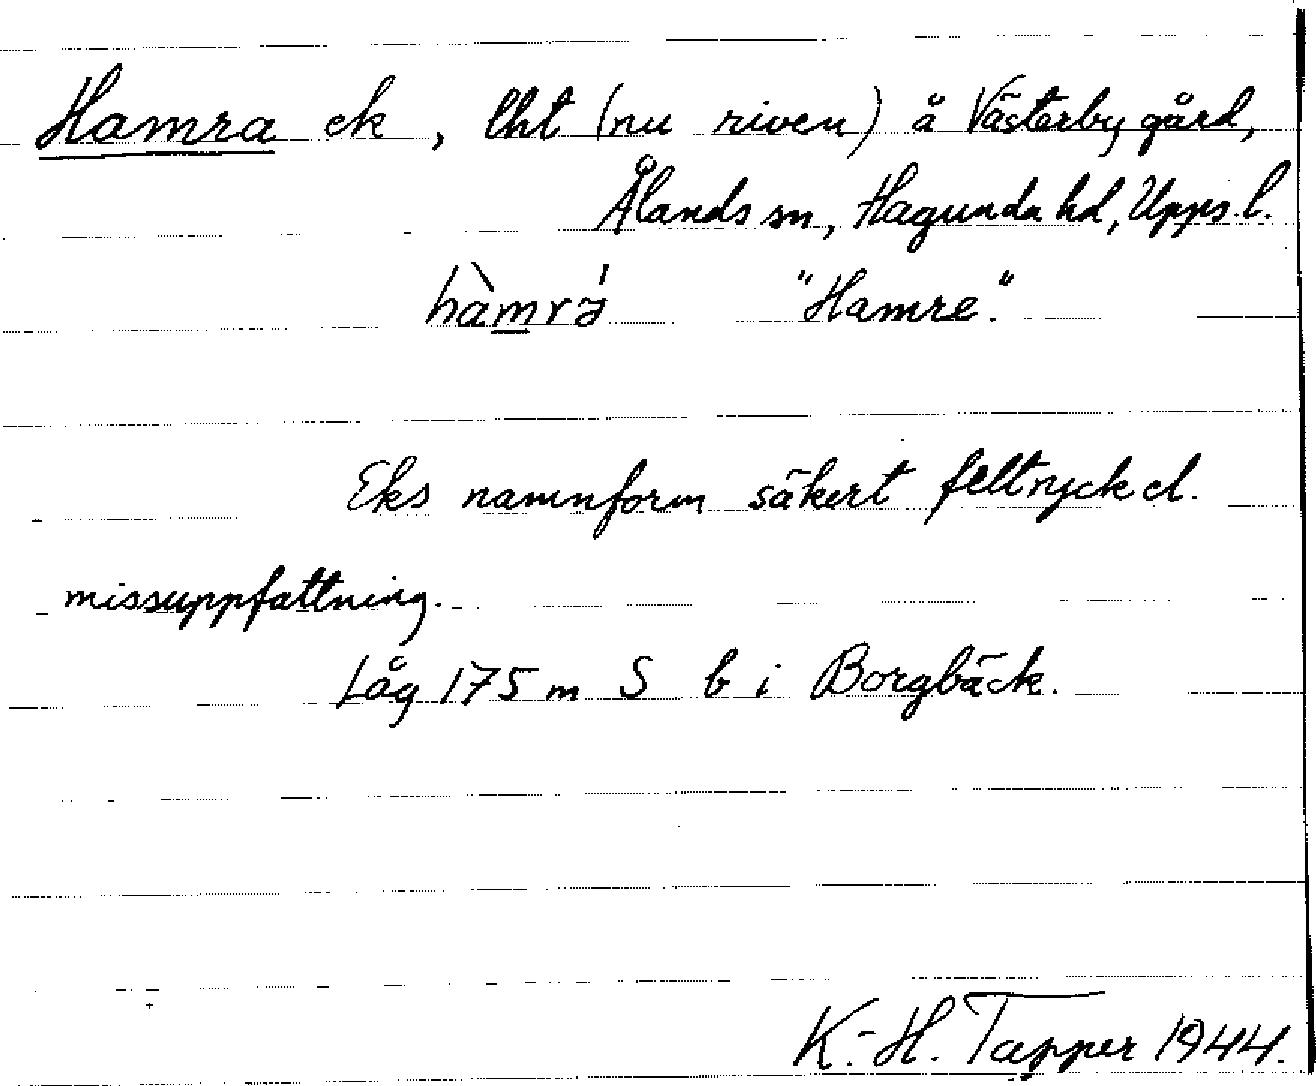 Hamra ek, lht (nu riven) å Västerby gård,
Ålands sn, Hagunda hd, Upps. l.
hàmrə́ "Hamre".
Eks namnform säkert feltryck el.
missuppfattning.
Låg 175 m S b i Borgbäck.
K.-H. Tapper 1944.